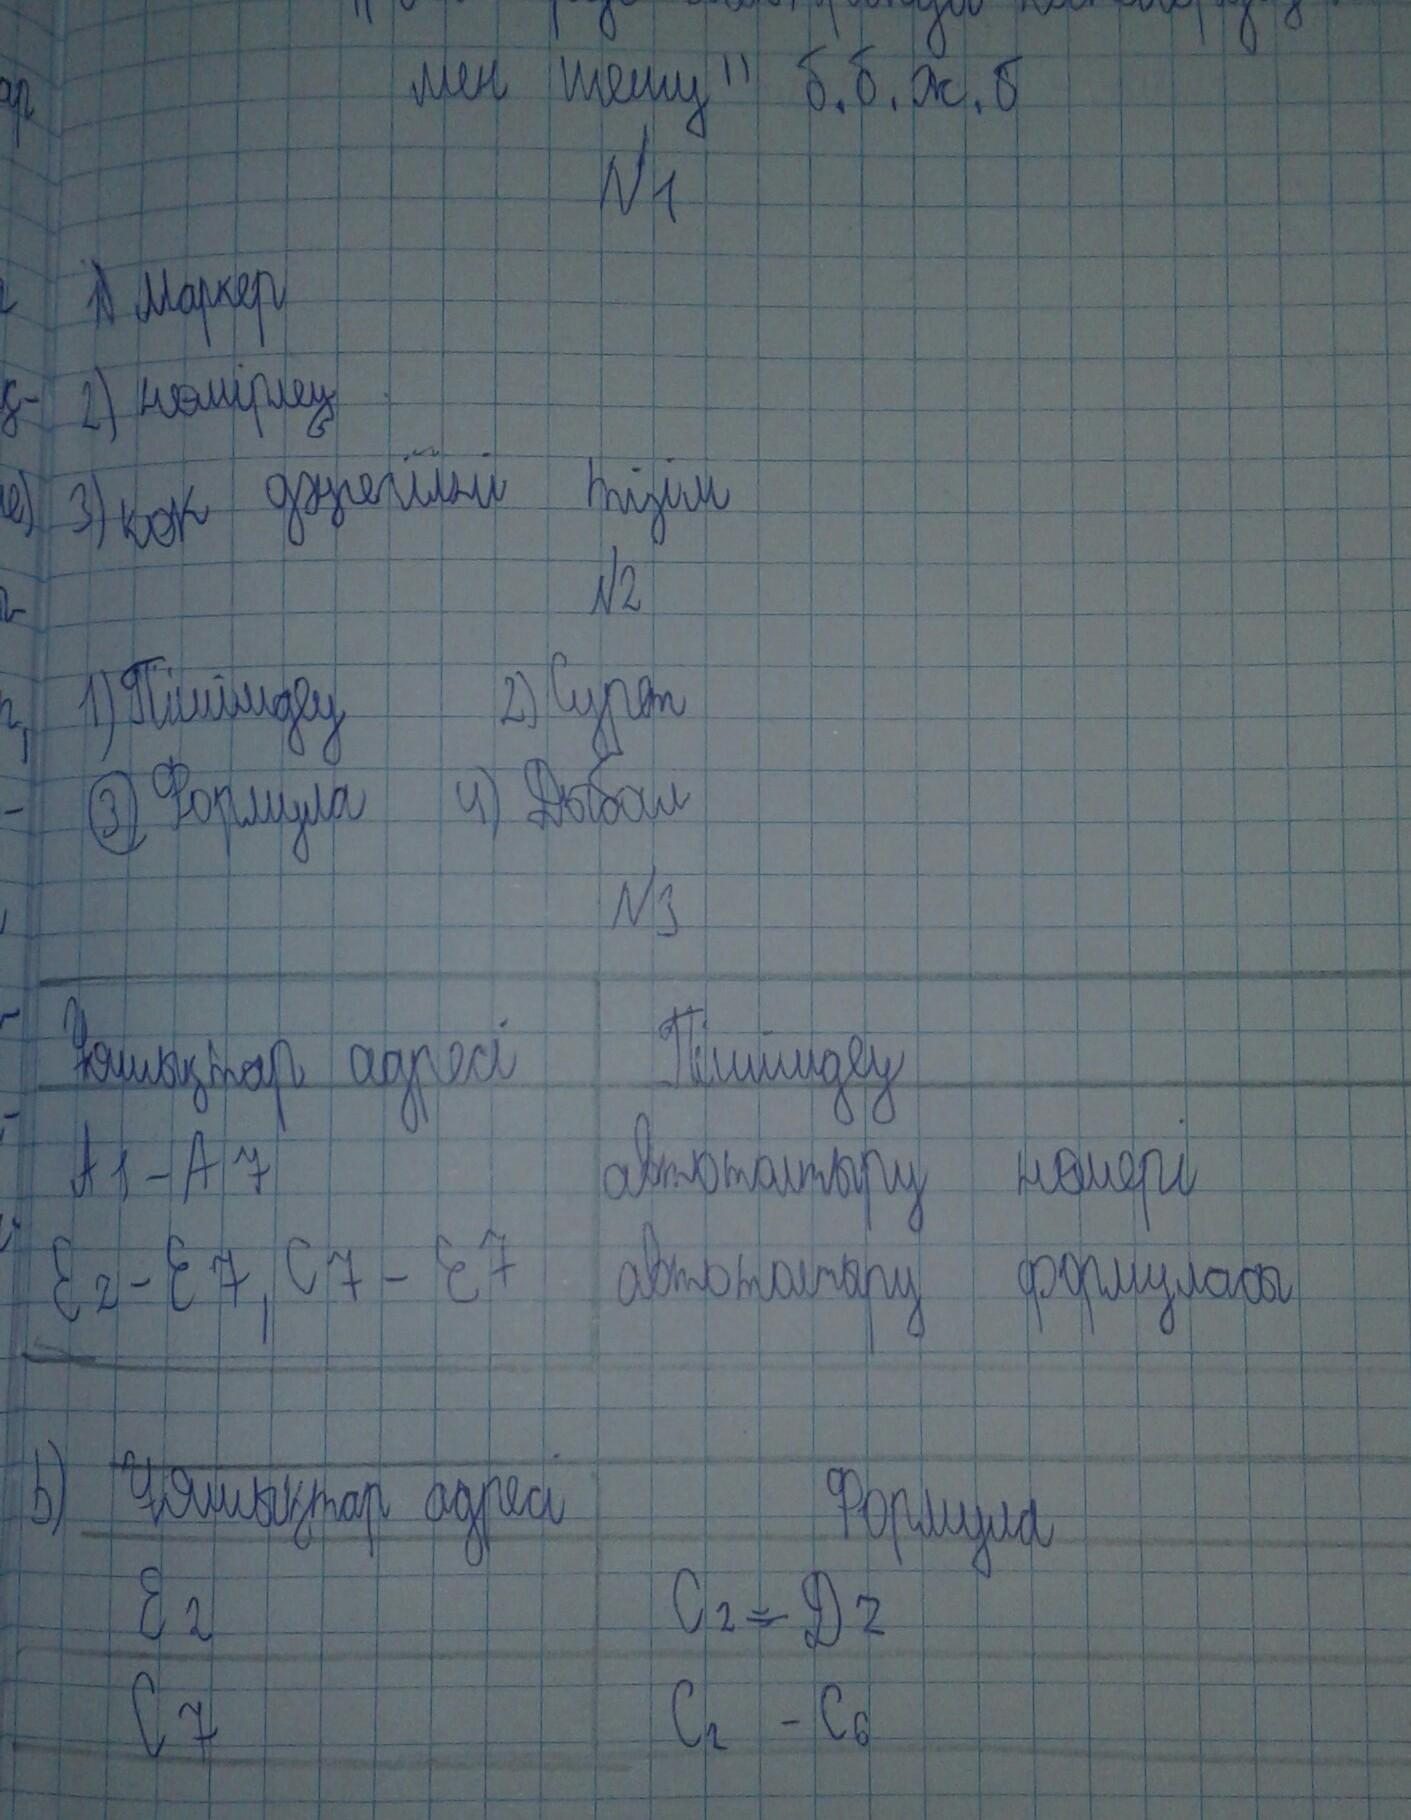 мен шешу" б.б.ж.б
N1
1) Маркер
2) нөмірлеу
3) көк деңгейлі тізім
N2
1) Пішімдеу 2) Сурет
3) Формула 4) Дыбыс
N3
Ұяшықтар адресі Пішімдеу
A1-A7 автотолтыру номері
E2-E7, C7-E7 автотолтыру формуласы
b) Ұяшықтар адресі Формула
E2 C2=D2
C7 C2 - C6